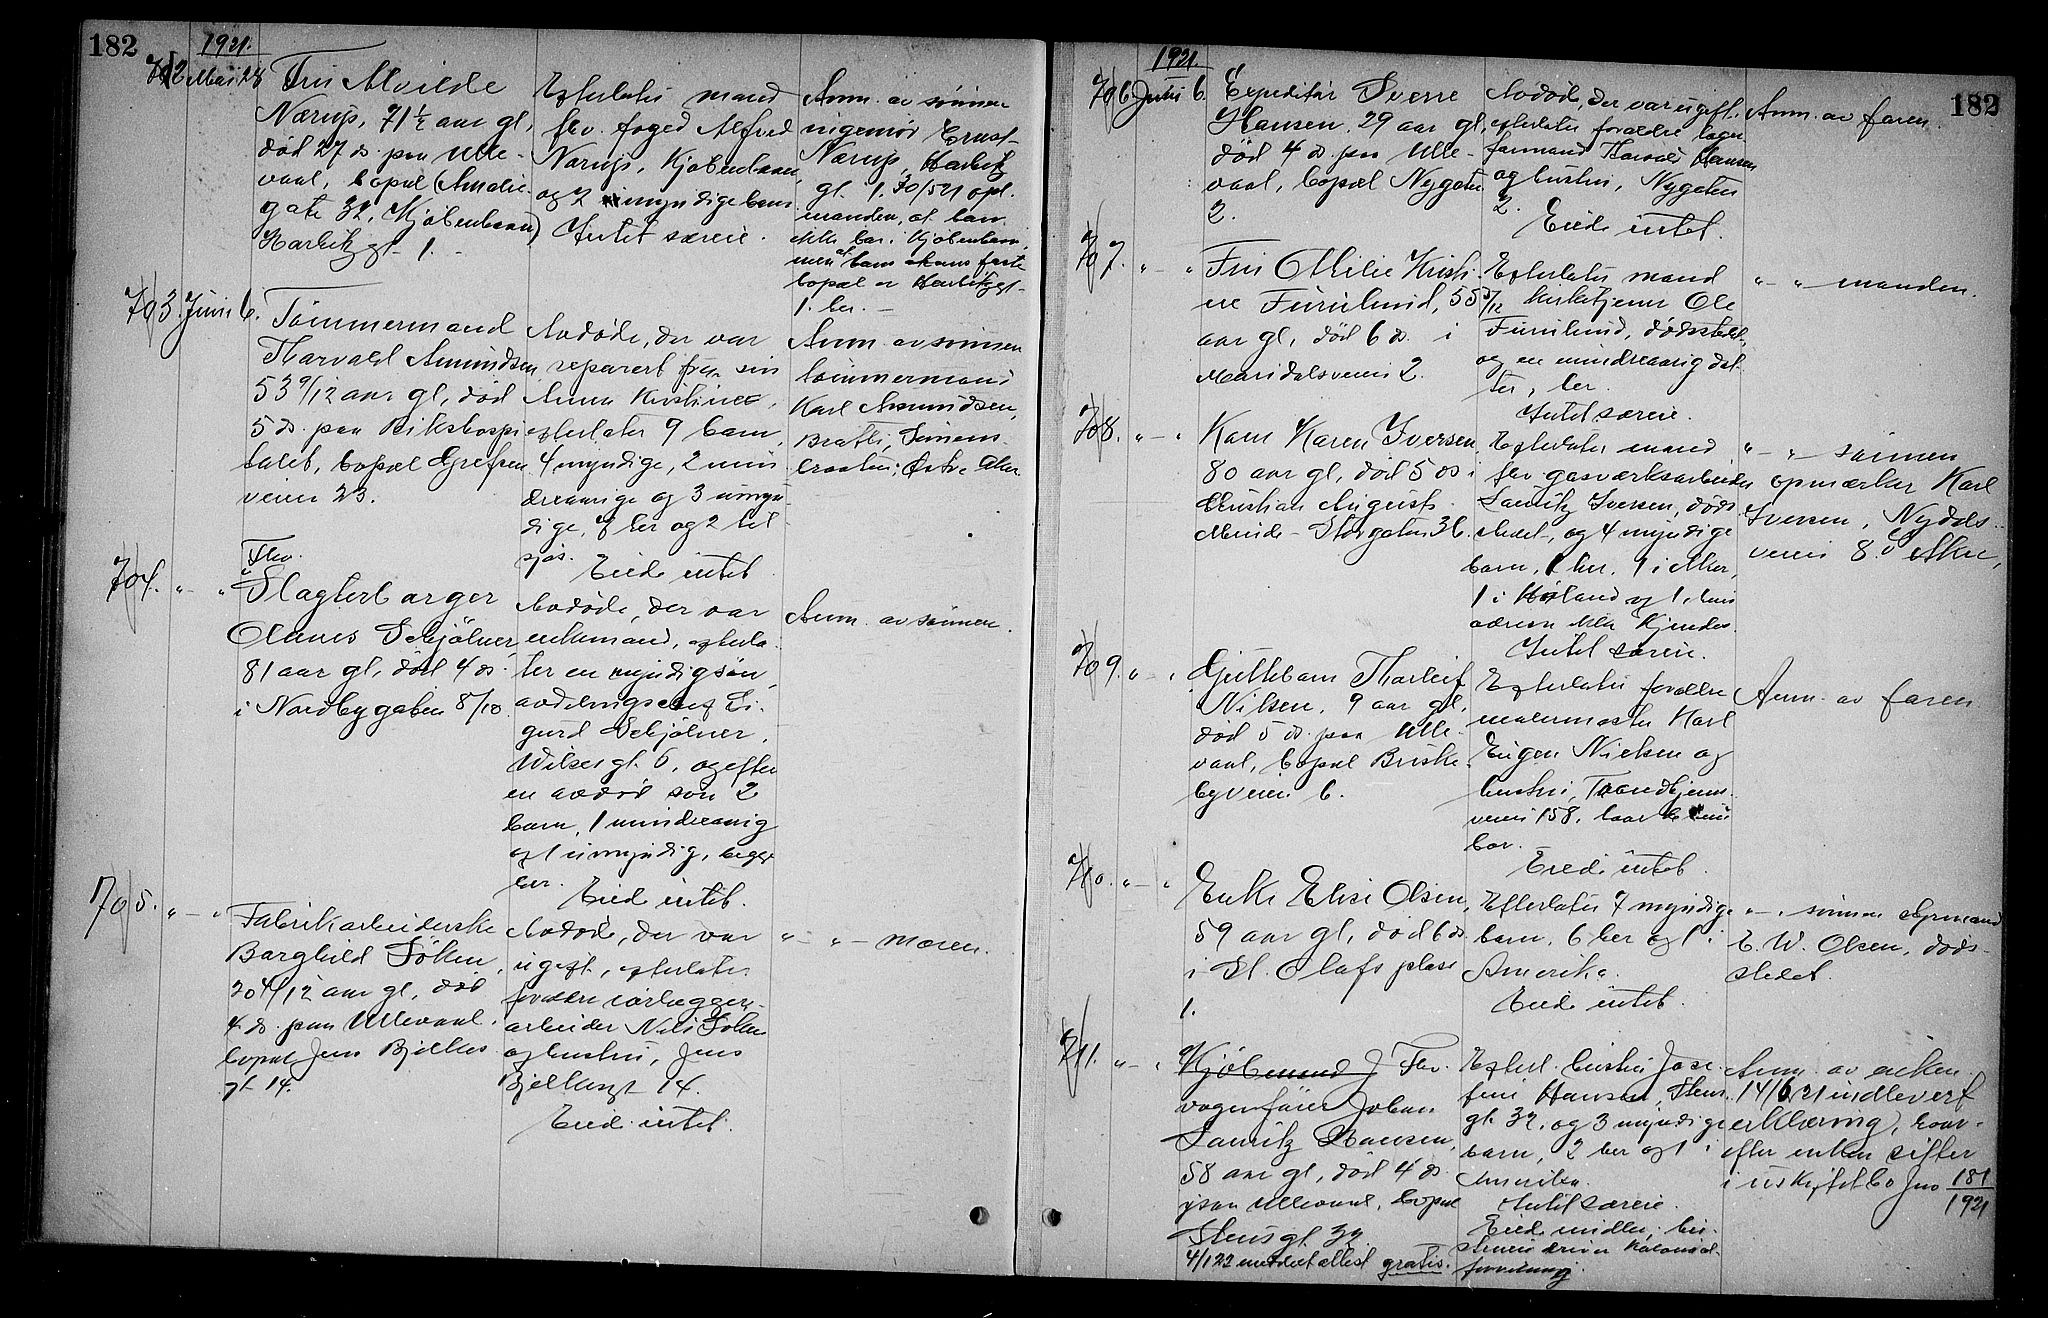 182
1921.
702 Mai 28
Fru Alvilde
Nærup, 71 1/2 aar gl,
død 27 ds. paa Ulle-
vaal, bopæl (Amalie
gate 32, Kjøbenhavn)
Harbitzgt. 1.
Efterlater mand
fhv. foged Alfred
Nærup, Kjøbenhavn,
og 2 myndige barn
Intet særeie.
Anm. av sønnen
ingeniør Ernst
Nærup, Harbitz
gt. 1, 30/5 21 opl.
manden, at han
ikke bor i Kjøbenhavn,
men at hans faste
bopæl er Harbitzgt.
1. her.
703. Juni 6.
Tømmermand
Thorvald Amundsen
53 9/12 aar gl, død
5 ds. paa Rikshospi
talet, bopæl Grefsen
veien 23.
Avdøde, der var
separert fra sin
Anna Kristine,
efterlater 9 barn,
4 myndige, 2 min
dreaarige og 3 umyn
dige, 7 her og 2 til
sjøs.
Eiede intet
Anm. av sønnen
tømmermand
Karl Amundsen,
Simens-
braaten, Østre Aker
704. " - "
Fhv.
Slagterborger
Olaves Schjølner,
81 aar gl, død 4 ds.
i Nordbygaten 8/10
Avdøde, der var
enkemand, efterla-
ter en myndig søn,
avdelingschef Si-
gurd Schjølner,
Wilsesgt. 6, og efter
en avdød søn 2
barn, 1 mindreaarig
og 1 umyndig, begge
her.
Eiede intet.
Anm. av sønnen.
705. " - "
Fabrikarbeiderske
Borghild Søken,
20 4/12 aar gl, død
4 ds. paa Ullevaal,
bopæl Jens Bjelkes
gt 14.
Avdøde, der var
ugift, efterlater
forældre
arbeider Nils Søken
og hustru, Jens
Bjelkesgt 14.
Eiede intet.
" - " - moren.
182
1921.
706 Juni 6.
Expeditør Sverre
Hansen, 29 aar gl,
død 4 ds. paa Ulle-
vaal, bopæl Nygaten
2.
Avdøde, der var ugift,
efterlater forældre lager
formand Harald Hansen
og hustru, Nygaten
2.
Eiede intet.
Anm. av faren.
707. " - "
Fru Milie Kristi
ne Furulund, 55 5/12
aar gl, død 6 ds. i
Maridalsveien 2.
Efterlater mand
kirketjener Ole
Furulund, dødsstedet,
og en mindreaarig dat
ter, her.
Intet særeie.
" - " - manden.
708. " - "
Kone Karen Iversen
80 aar gl, død 5 ds i
Christian Augusts
Minde - Storgaten 36.
Efterlater mand
fhv gasværksarbeider
Lauritz Iversen, døds
stedet, og 4 myndige
barn, 1 her, 1 i Aker,
1 i Høland og 1, hvis
adresse ikke kjendes.
Intet særeie.
" - " - sønnen
opmærker Karl
Iversen, Nydals
veien 8. ø Aker,
709. " - "
Guttebarn Thorleif
Nilsen, 9 aar gl,
død 5 ds. paa Ulle-
vaal, bopæl Briske
byveien 6.
Efterlater forældre
malermester Karl
Eugen Nielsen og
hustru, Trondhjems
veien 158, hvor
bor.
Eiede intet.
Anm. av faren
710. " - "
Enke Elise Olsen,
59 aar gl, død 6 ds.
i St. Olafs plass
1.
Efterlater 7 myndige
barn, 6 her og 1 i
Amerika.
Eiede intet.
" - " sønnen styrmand
E. W. Olsen, døds-
stedet.
711. " - "
Kjøbmand J Fhv.
vognfører Johan
Lauritz Hansen,
58 aar gl, død 4 ds.
paa Ullevaal, bopæl
Stensgt. 32.
4/1 22 meddelt attest gratis.
Efterl. hustru Jose
fine Hansen, Stens
gt. 32, og 3 myndige
barn, 2 her og 1 i
Amerika.
Intet særeie.
Eiede midler, hu-
struen driver kolonial
forretning.
Anm. av enken.
14/6 21 indlevert
erklæring, hvor-
efter enken sitter
i uskiftet bo Jno 181/1921
182